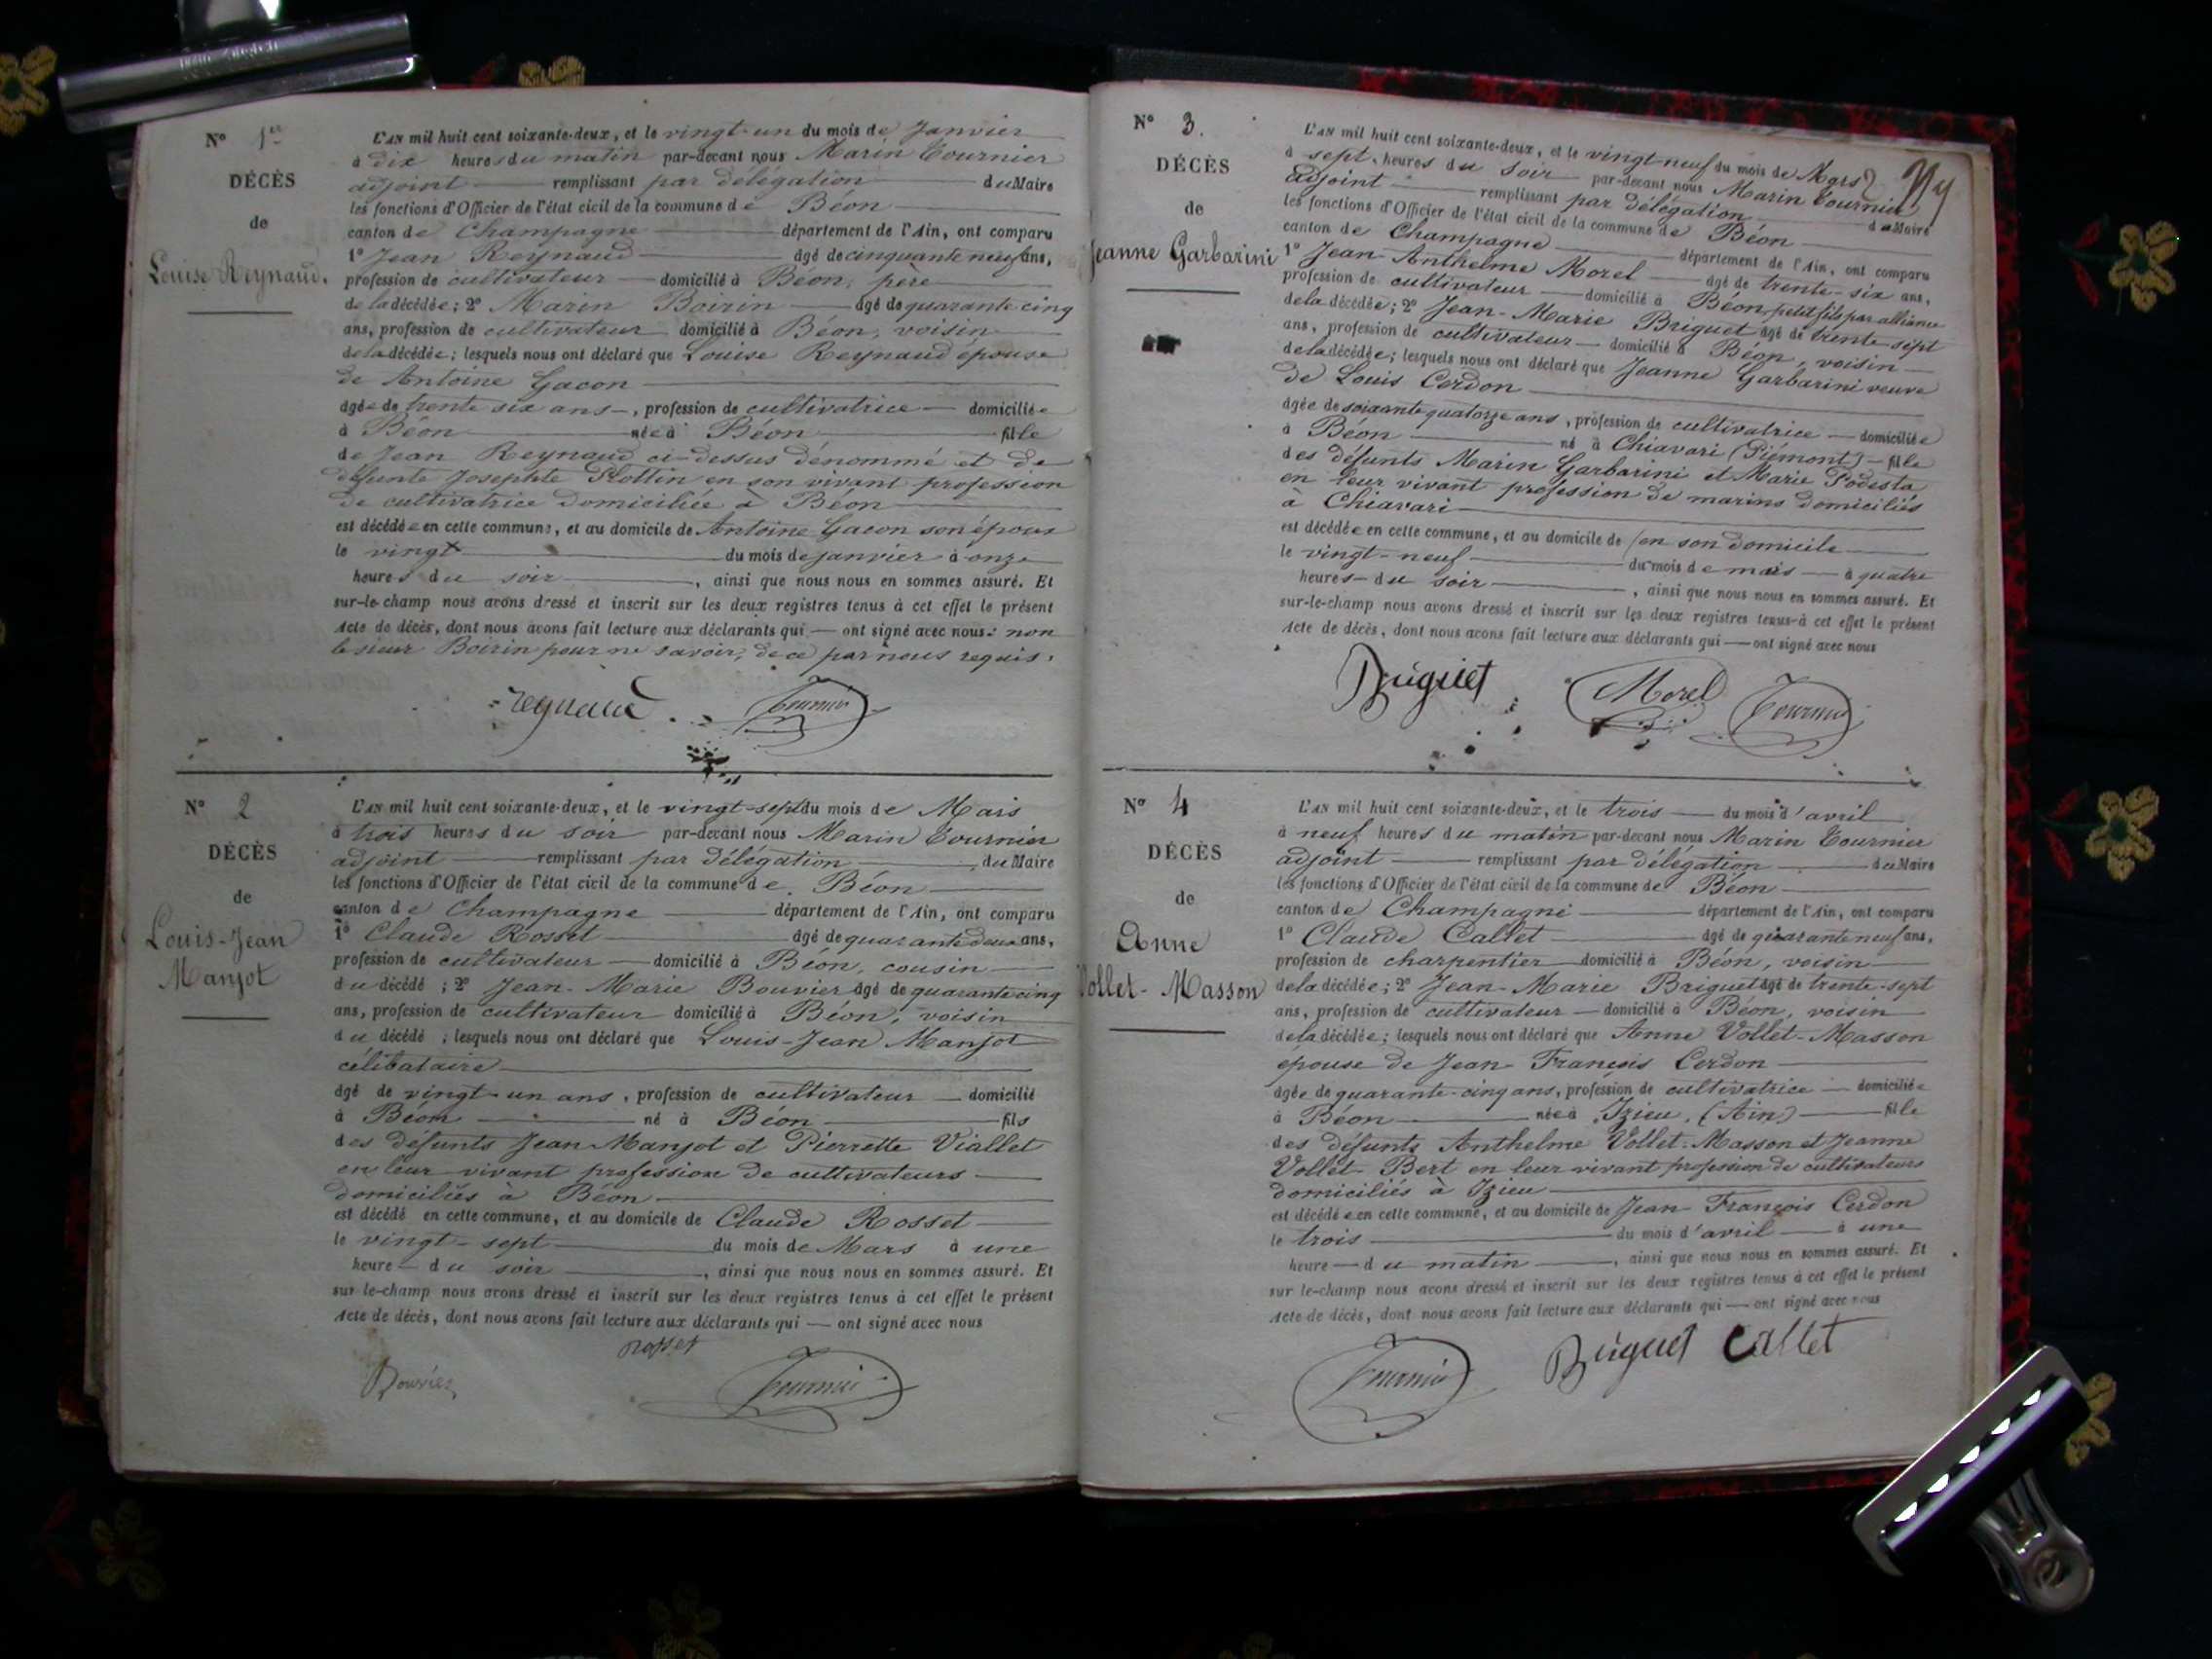 N° 1er
DÉCÈS
de
Louise Reynaud.
L'AN mil huit cent soixante-deux, et le vingt-un du mois de Janvier
à dix heures du matin par-devant nous Marin Tournier
adjoint remplissant par délégation du Maire
les fonctions d'Officier de l'état civil de la commune de Béon
canton de Champagne département de l'Ain, ont comparu
1° Jean Reynaud âgé de cinquante neuf ans,
profession de cultivateur domicilié à Béon, père
de la décédée; 2° Marin Boirin âgé de quarante cinq
ans, profession de cultivateur domicilié à Béon, voisin
de la décédée; lesquels nous ont déclaré que Louise Reynaud épouse
de Antoine Gacon
âgée de trente six ans, profession de cultivatrice domiciliée
à Béon née à Béon fille
de Jean Reynaud ci-dessus dénommé et de
défunte Josephte Plottin en son vivant profession
de cultivatrice domiciliée à Béon
est décédée en cette commune, et au domicile de Antoine Gacon son époux
le vingt du mois de janvier à onze
heures du soir, ainsi que nous nous en sommes assuré. Et
sur-le-champ nous avons dressé et inscrit sur les deux registres tenus à cet effet le présent
Acte de décès, dont nous avons fait lecture aux déclarants qui — ont signé avec nous: non
le sieur Boirin pour ne savoir, de ce par nous requis.
reynaud Tournier
N° 2
DÉCÈS
de
Louis-Jean
Manjot
L'AN mil huit cent soixante-deux, et le vingt-sept du mois de Mars
à trois heures du soir par-devant nous Marin Tournier
adjoint remplissant par délégation du Maire
les fonctions d'Officier de l'état civil de la commune de Béon
canton de Champagne département de l'Ain, ont comparu
1° Claude Rosset âgé de quarante deux ans,
profession de cultivateur domicilié à Béon, cousin
du décédé; 2° Jean-Marie Bouvier âgé de quarante cinq
ans, profession de cultivateur domicilié à Béon, voisin
du décédé; lesquels nous ont déclaré que Louis-Jean Manjot
célibataire
âgé de vingt-un ans, profession de cultivateur domicilié
à Béon né à Béon fils
des défunts Jean Manjot et Pierrette Viallet
en leur vivant profession de cultivateurs
domiciliés à Béon
est décédé en cette commune, et au domicile de Claude Rosset
le vingt-sept du mois de Mars à une
heure du soir, ainsi que nous nous en sommes assuré. Et
sur-le-champ nous avons dressé et inscrit sur les deux registres tenus à cet effet le présent
Acte de décès, dont nous avons fait lecture aux déclarants qui — ont signé avec nous
rosset
Bouvier Tournier
N° 3.
DÉCÈS
de
Jeanne Garbarini
L'AN mil huit cent soixante-deux, et le vingt-neuf du mois de Mars
à sept heures du soir par-devant nous Marin Tournier
adjoint remplissant par délégation du Maire
les fonctions d'Officier de l'état civil de la commune de Béon
canton de Champagne département de l'Ain, ont comparu
1° Jean-Anthelme Morel âgé de trente-six ans,
profession de cultivateur domicilié à Béon, petit fils par alliance
de la décédée; 2° Jean-Marie Briguet âgé de trente-sept
ans, profession de cultivateur domicilié à Béon, voisin
de la décédée; lesquels nous ont déclaré que Jeanne Garbarini veuve
de Louis Cerdon
âgée de soixante quatorze ans, profession de cultivatrice domiciliée
à Béon né à Chiavari (Piémont) fille
des défunts Marin Garbarini et Marie Podesta
en leur vivant profession de marins domiciliés
à Chiavari
est décédée en cette commune, et au domicile de (en son domicile
le vingt-neuf du mois de mars à quatre
heures du soir, ainsi que nous nous en sommes assuré. Et
sur-le-champ nous avons dressé et inscrit sur les deux registres tenus à cet effet le présent
Acte de décès, dont nous avons fait lecture aux déclarants qui — ont signé avec nous
Briguet Morel Tournier
N° 4
DÉCÈS
de
Anne
Vollet-Masson
L'AN mil huit cent soixante-deux, et le trois du mois d'avril
à neuf heures du matin par-devant nous Marin Tournier
adjoint remplissant par délégation du Maire
les fonctions d'Officier de l'état civil de la commune de Béon
canton de Champagne département de l'Ain, ont comparu
1° Claude Callet âgé de quarante neuf ans,
profession de charpentier domicilié à Béon, voisin
de la décédée; 2° Jean-Marie Briguet âgé de trente-sept
ans, profession de cultivateur domicilié à Béon, voisin
de la décédée; lesquels nous ont déclaré que Anne Vollet-Masson
épouse de Jean François Cerdon
âgée de quarante-cinq ans, profession de cultivatrice domiciliée
à Béon née à Izieu, (Ain) fille
des défunts Anthelme Vollet-Masson et Jeanne
Vollet-Bert en leur vivant profession de cultivateurs
domiciliés à Izieu
est décédée en cette commune, et au domicile de Jean François Cerdon
le trois du mois d'avril à une
heure du matin, ainsi que nous nous en sommes assuré. Et
sur-le-champ nous avons dressé et inscrit sur les deux registres tenus à cet effet le présent
Acte de décès, dont nous avons fait lecture aux déclarants qui — ont signé avec nous
Tournier Briguet Callet